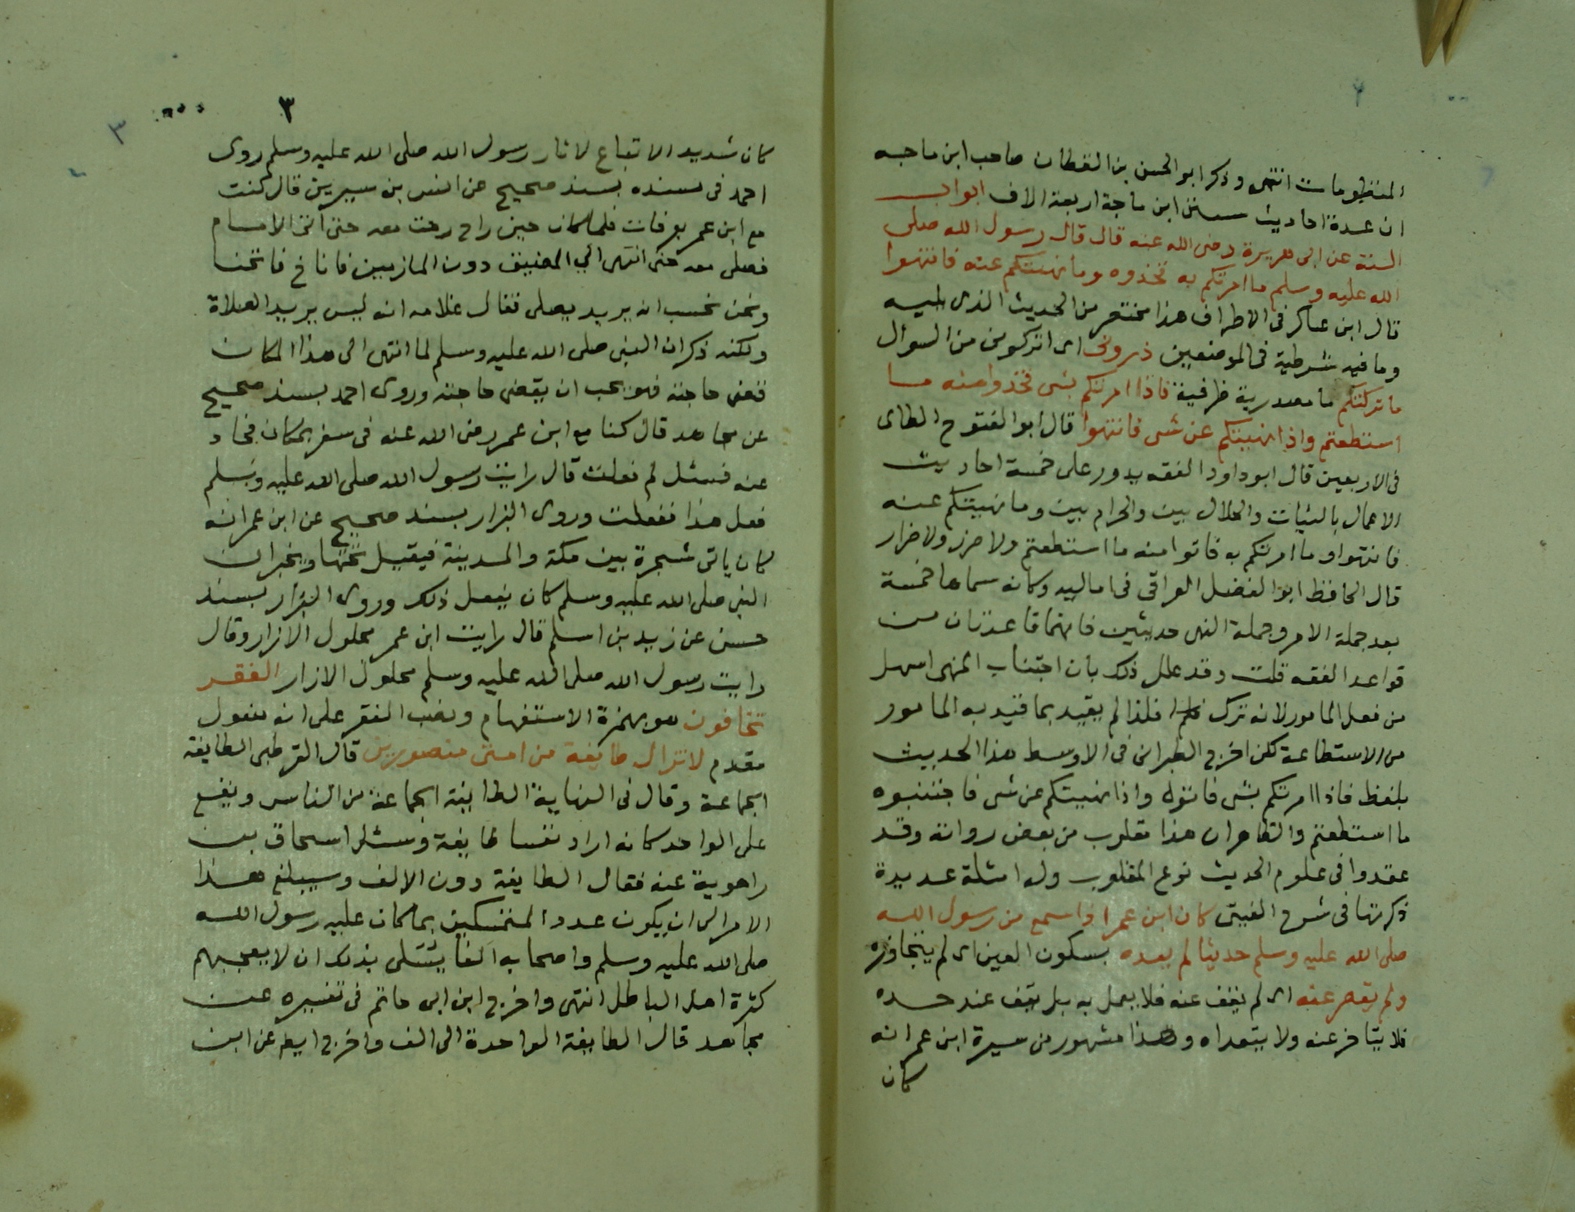 المنظومات انتهى وذكر ابو الحسن بن القطان صاحب ابن ماجه
ان عدة احاديث سنن ابن ماجة اربعة الاف ابواب
السنة عن ابى هريرة رضى الله عنه قال قال رسول الله صلى
الله عليه وسلم ما امرتكم به فخذوه وما نهيتكم عنه فانتهوا
قال ابن عساكر فى الاطراف هذا مختصر من الحديث الذى يليه
وما فيه شرطية فى الموضعين ذرونى اى اتركونى من السوال
ما تركتكم ما مصدرية ظرفية فاذا امرتكم بشى فخذوا منه ما
استطعتم واذا نهيتكم عن شى فانتهوا قال ابو الفتوح الطاى
فى الاربعين قال ابو داود الفقه يدور على خمسة احاديث
الاعمال بالنيات والحلال بين والحرام بين وما نهيتكم عنه
فانتهوا وما امرتكم به فاتوا منه ما استطعتم ولا ضرر ولا ضرار
قال الحافظ ابو الفضل العراقى فى اماليه وكانه سماها خمسة
بعد جملة الامر وجملة النهى حديثين فانهما قاعدتان من
قواعد الفقه قلت وقد علل ذلك بان اجتناب المنهى اسهل
من فعل المامور لانه ترك فلذا لم يقيد بما قيد به المامور
من الاستطاعة لكن اخرج الطبرانى فى الاوسط هذا الحديث
بلفظ فاذا امرتكم بشى فاتوه واذا نهيتكم عن شى فاجتنبوه
ما استطعتم والظاهر ان هذا مقلوب من بعض رواته وقد
عقدوا فى علوم الحديث نوع المقلوب وله امثلة عديدة
ذكرتها فى شرح الفيتى كان ابن عمر اذا سمع من رسول الله
صلى الله عليه وسلم حديثا لم يعده بسكون العين اى لم يتجاوزه
ولم يقصر عنه اى لم يقف عنه فلا يعمل به بل يقف عند حده
فلا يتاخر عنه ولا يتعداه وهذا مشهور من سيرة ابن عمر انه
كان
٣
٣
كان شديد الاتباع لاثار رسول الله صلى الله عليه وسلم روى
احمد فى مسنده بسند صحيح عن انس بن سيرين قال كنت
مع ابن عمر بعرفات فلما كان حين راح رحت معه حتى اتى الامام
فصلى معه حتى انتهى الى المضيق دون المازمين فاناخ فانخنا
ونحن نحسب انه يريد يصلى فقال غلامه انه ليس يريد الصلاة
ولكنه ذكر ان النبى صلى الله عليه وسلم لما انتهى الى هذا المكان
قضى حاجته فهو يحب ان يقضى حاجته وروى احمد بسند صحيح
عن مجاهد قال كنا مع ابن عمر رضى الله عنه فى سفر بمكان فحاد
عنه فسئل لم فعلت قال رايت رسول الله صلى الله عليه وسلم
فعل هذا ففعلت وروى البزار بسند صحيح عن ابن عمر انه
كان ياتى شجرة بين مكة والمدينة فيقيل تحتها ويخبر ان
النبى صلى الله عليه وسلم كان يفعل ذلك وروى البزار بسند
حسن عن زيد بن اسلم قال رايت ابن عمر محلول الازار وقال
رايت رسول الله صلى الله عليه وسلم محلول الازار الفقر
تخافون هو بهمزة الاستفهام ونصب الفقر على انه مفعول
مقدم لا تزال طايفة من امتى منصورين قال القرطبى الطايفة
الجماعة وقال فى النهاية الطايفة الجماعة من الناس ويقع
على الواحد كانه اراد نفسا طايفة وسئل اسحاق بن
راهوية عنه فقال الطايفة دون الالف وسيبلغ هذا
الامر الى ان يكون عدد المتمسكين بما كان عليه رسول الله
صلى الله عليه وسلم واصحابه الفا يتسلى بذلك ان لا يعجبهم
كثرة اهل الباطل انتهى واخرج ابن ابى حاتم فى تفسيره عن
مجاهد قال الطايفة الواحدة الى الف واخرج ايضا عن ابن